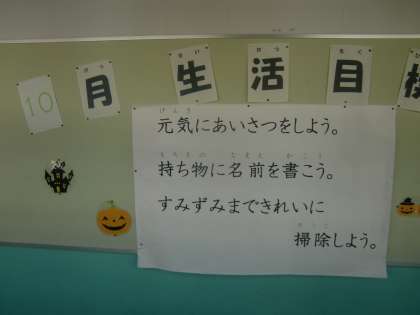 10月生活目標
元気にあいさつをしよう。
持ち物に名前を書こう。
すみずみまできれいに
掃除しよう。